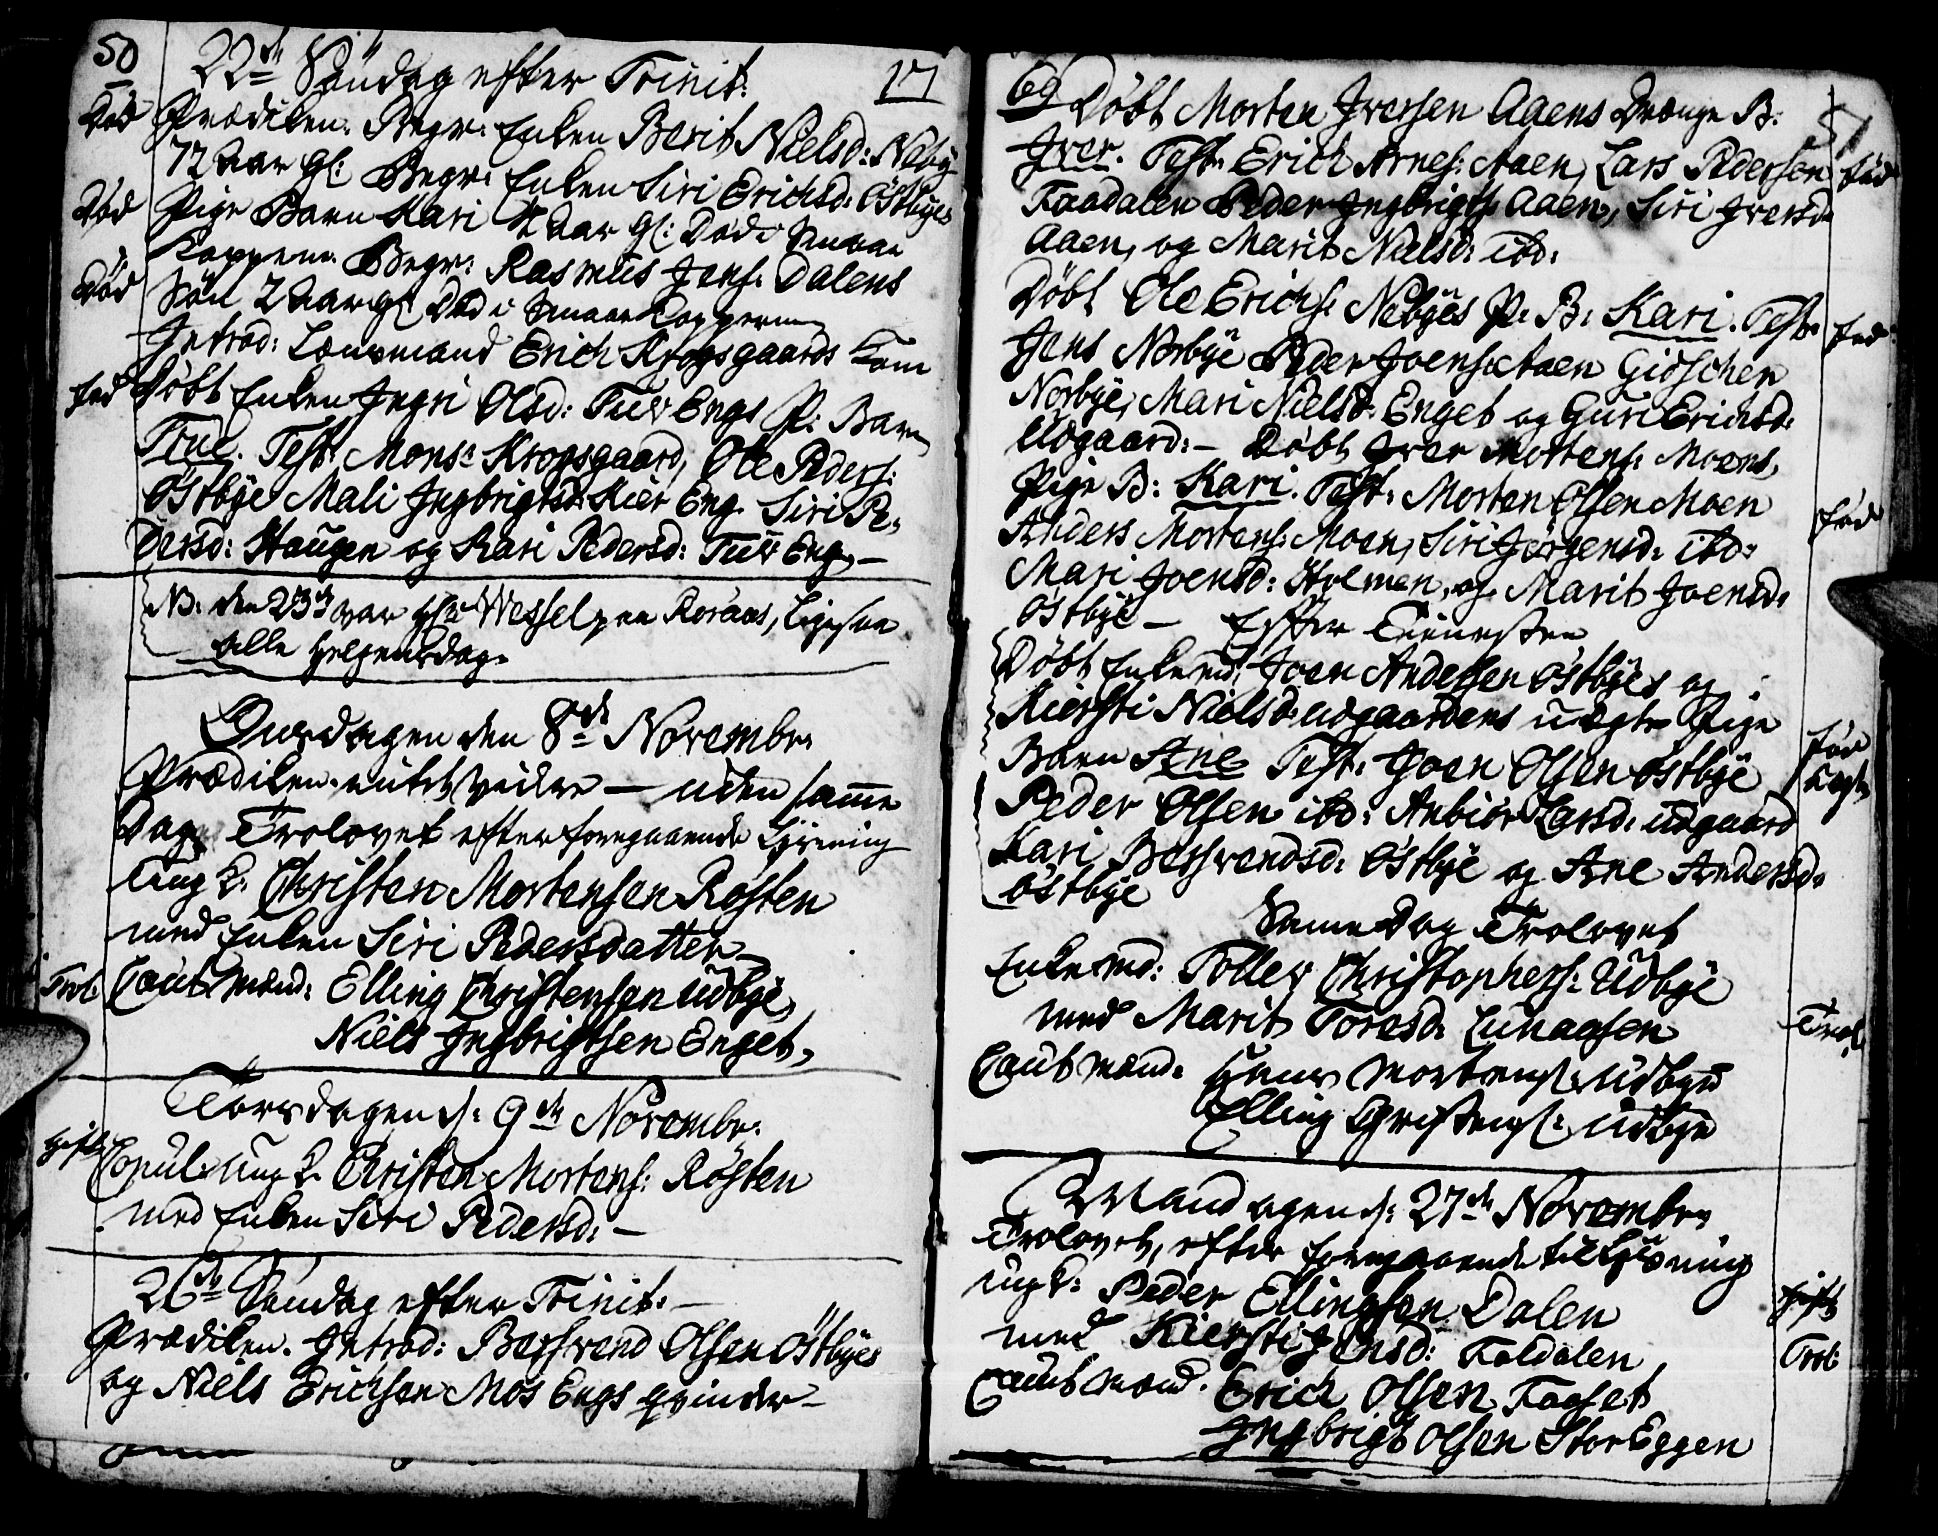 50
22de Søndag efter Trinit:
17
Død Prædiken. Begr: Enken Berit Nielsd: Nebÿ
72 Aar gl: Begr: Enken Siri Erichsd: Østbÿes
Død Pige Barn Kari 4 Aar gl: Død i Smaae
Koppene. Begr: Rasmus Jens: Dalens
Død Søn 2 Aar gl Død i Smaae Kopperne
Introd: Lensmand Erich Krogsgaards Kone
Fød Døbt Enken Ingri Olsd: Tuv Engs P: Barn
True. Test: Mons: Krogsgaard, Ole Peders:
Østbÿe Mali Ingbrigtsd: Kier Eng. Siri Pe-
dersd: Haugen og Kari Pedersd: Tuv Eng. —
NB: den 23de var Hr: Wessel paa Røraas, ligesaa
alle Helgensdag.
Onsdagen den 8de Novembr:
Prædiken — uden samme
Dag Trolovet efter foregaaende Lysning
Ung K: Christen Mortensen Røsten
med Enken Siri Pedersdatter —
Trol: Caut. Mænd: Elling Christensen Udbÿe,
Niels Ingbrigtsen Enget,
Torsdagen d: 9de Novembr:
Gift Copul: Ung K: Christen Mortens: Røsten
med Enken Siri Pedersd: —
26de Søndag efter Trinit: —
Prædiken. Introd: Berhrend Olsen Østbÿes
og Niels Erichsen Mos Engs qvinder —
69
51
Døbt Morten Iversen Aaens Drænge B:
Iver. Test: Erich Arnes: Aaen, Lars Pedersen Fød
Faadalen Peder Ingbrigts: Aaen, Siri Iversd:
Aaen, og Marit Nielsd: ibd:
Døbt Ole Erichs: Nebÿes P: B: Kari. Test: Fød
Jens Norbÿe Peder Joens: Aaen Gidschen
Norbÿe, Mari Nielsd: Enget og Guri Erichsd:
Udgaard: — Døbt Iver Mortens: Moens,
Pige B: Kari. Test: Morten Olsen Moen Fød
Anders Mortens: Moen, Siri Jørgensd: ibd:
Mari Joensd: Holmen, og Marit Joensd:
Østbÿe — Efter Tienesten
Døbt Enkemd: Joen Andersen Østbÿes og
Kiersti Nielsd: Udgaardens uægte Pige Fød
Barn Ane Test: Joen Olsen Østbÿe uægte
Peder Olsen ibd: Anbiør Larsd: Udgaard
Kari Berhrendsd: Østbÿe og Ane Andersd:
Østbÿe
Samme Dag Trolovet
Enkemd: Tollev Christophers: Udbÿe
med Marit Toresd: Lunaasen Trol.
Caut mænd: Hans Mortens: Udbye
Elling Christens: Udbye
Mandagen d: 27de Novembr:
Trolovet, efter foregaaende tillysning
ung K: Peder Ellingsen Dalen Gift
med Kiersti Jensd: Faldalen Trol:
Caut mænd: Erich Olsen Faaset
Ingbrigt Olsen Stor Eggen